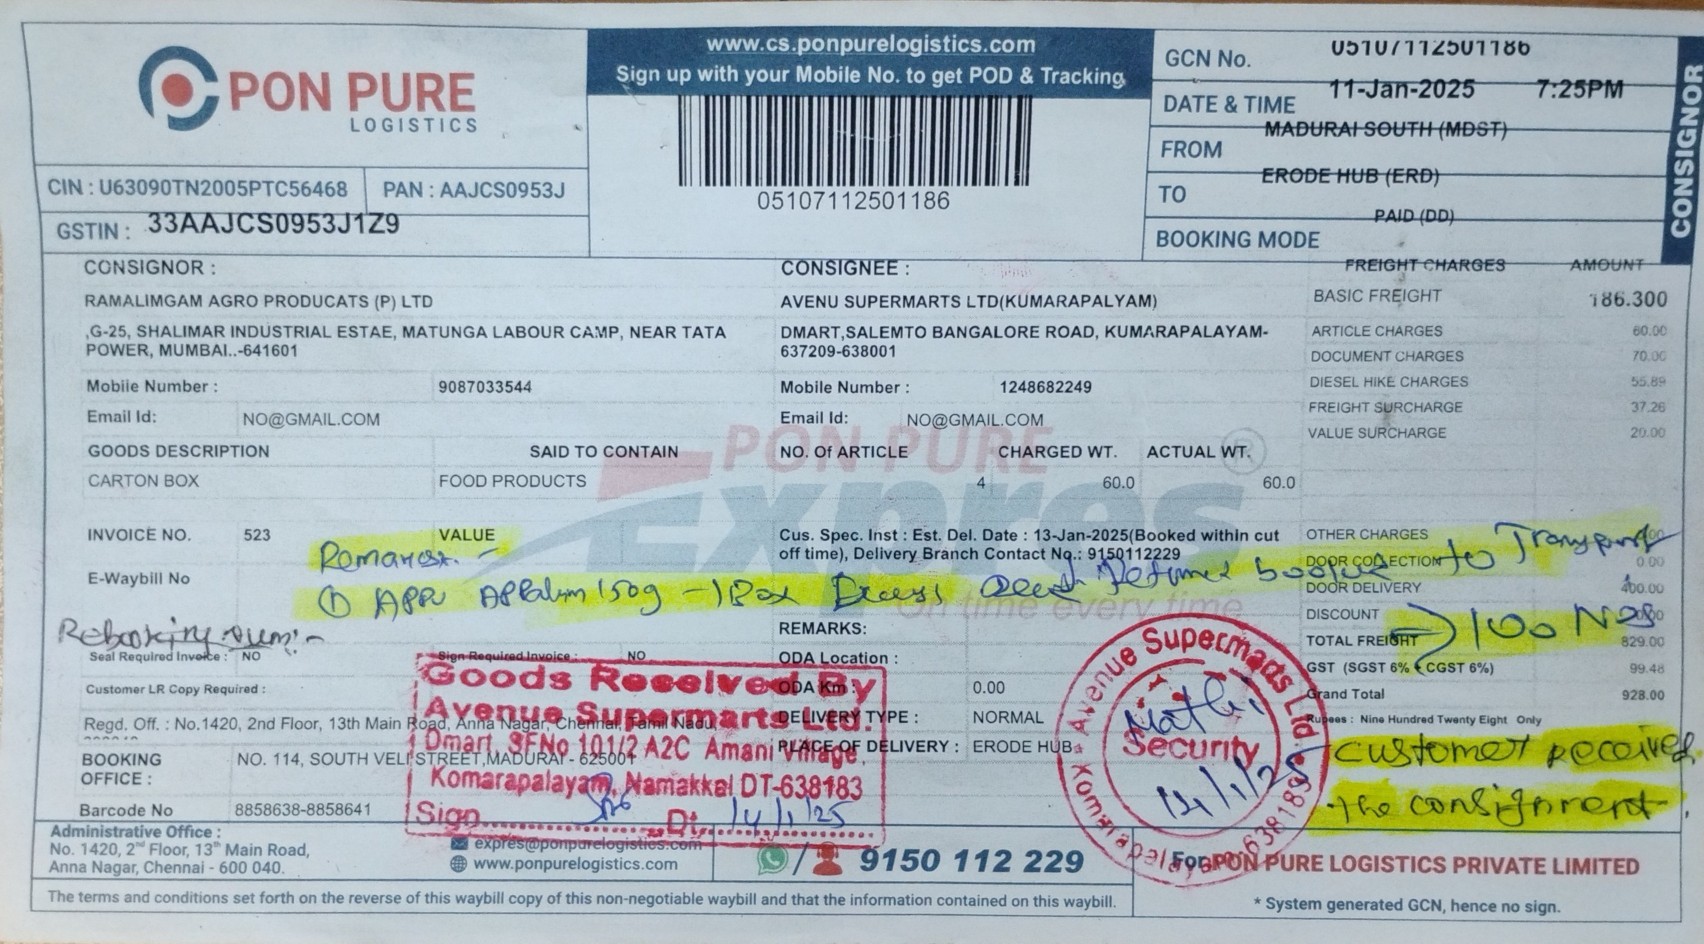 PON PURE
LOGISTICS
www.cs.ponpurelogistics.com
Sign up with your Mobile No. to get POD & Tracking
05107112501186
GCN No. 05107112501186
DATE & TIME 11-Jan-2025 7:25PM
FROM MADURAI SOUTH (MDST)
TO ERODE HUB (ERD)
BOOKING MODE PAID (DD)
CONSIGNOR
CIN : U63090TN2005PTC56468 PAN : AAJCS0953J
GSTIN : 33AAJCS0953J1Z9
CONSIGNOR :
RAMALIMGAM AGRO PRODUCATS (P) LTD
,G-25, SHALIMAR INDUSTRIAL ESTAE, MATUNGA LABOUR CAMP, NEAR TATA
POWER, MUMBAI..-641601
Mobile Number : 9087033544
Email Id: NO@GMAIL.COM
CONSIGNEE :
AVENU SUPERMARTS LTD(KUMARAPALYAM)
DMART,SALEMTO BANGALORE ROAD, KUMARAPALAYAM-
637209-638001
Mobile Number : 1248682249
Email Id: NO@GMAIL.COM
FREIGHT CHARGES AMOUNT
BASIC FREIGHT 186.300
ARTICLE CHARGES 60.00
DOCUMENT CHARGES 70.00
DIESEL HIKE CHARGES 55.89
FREIGHT SURCHARGE 37.26
VALUE SURCHARGE 20.00
GOODS DESCRIPTION SAID TO CONTAIN NO. Of ARTICLE CHARGED WT. ACTUAL WT.
CARTON BOX FOOD PRODUCTS 4 60.0 60.0
PON PURE
Expres
On time every time
INVOICE NO. 523 VALUE
Cus. Spec. Inst : Est. Del. Date : 13-Jan-2025(Booked within cut
off time), Delivery Branch Contact No.: 9150112229
E-Waybill No
① Appalam 150g - 1 Box Excess to Transport
100 Nos
OTHER CHARGES
DOOR COLLECTION 0.00
DOOR DELIVERY 400.00
DISCOUNT
TOTAL FREIGHT 829.00
GST (SGST 6% CGST 6%) 99.48
Grand Total 928.00
Rupees : Nine Hundred Twenty Eight Only
Rebooking
Seal Required Invoice : NO Sign Required Invoice : NO
Customer LR Copy Required :
REMARKS:
ODA Location :
ODA Km : 0.00
DELIVERY TYPE : NORMAL
PLACE OF DELIVERY : ERODE HUB
Regd. Off. : No.1420, 2nd Floor, 13th Main Road, Anna Nagar, Chennai, Tamil Nadu,
BOOKING
OFFICE :
NO. 114, SOUTH VELI STREET,MADURAI - 625001
Barcode No 8858638-8858641
Goods Received By
Avenue Supermarts Ltd.
Dmart, SFNo 101/2 A2C Amani Village,
Komarapalayam, Namakkal DT-638183
Sign Dt 14/1/25
Avenue Supermarts Ltd.
Mathi
Security
14/1/25
Customer Received
the consignment.
Administrative Office :
No. 1420, 2nd Floor, 13th Main Road,
Anna Nagar, Chennai - 600 040.
expres@ponpurelogistics.com
www.ponpurelogistics.com
9150 112 229
For PON PURE LOGISTICS PRIVATE LIMITED
The terms and conditions set forth on the reverse of this waybill copy of this non-negotiable waybill and that the information contained on this waybill.
* System generated GCN, hence no sign.